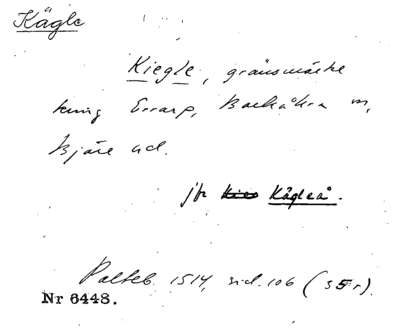 Kägle
Kiegle, gränsmärke
kring Errarp, Barkåkra sn,
Bjäre hd.
jfr Kägleå.
Palteb. 1514, sid. 106 (s 5 r).
Nr 6448.